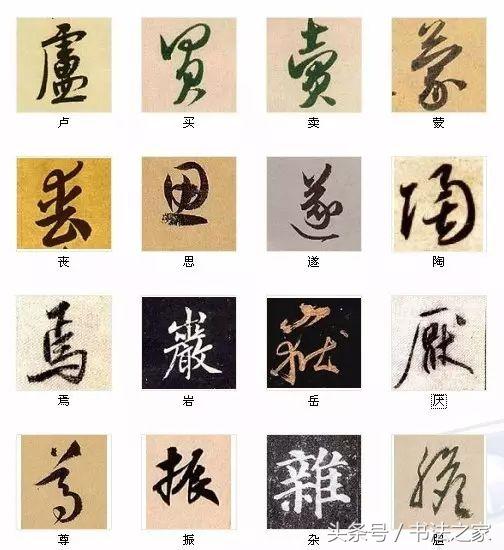 盧 買 賣 蒙
卢 买 卖 蒙
喪 思 遂 陶
丧 思 遂 陶
焉 巖 嶽 厭
焉 岩 岳 厌
尊 振 雜 膽
尊 振 杂 胆
头条号 / 书法之家